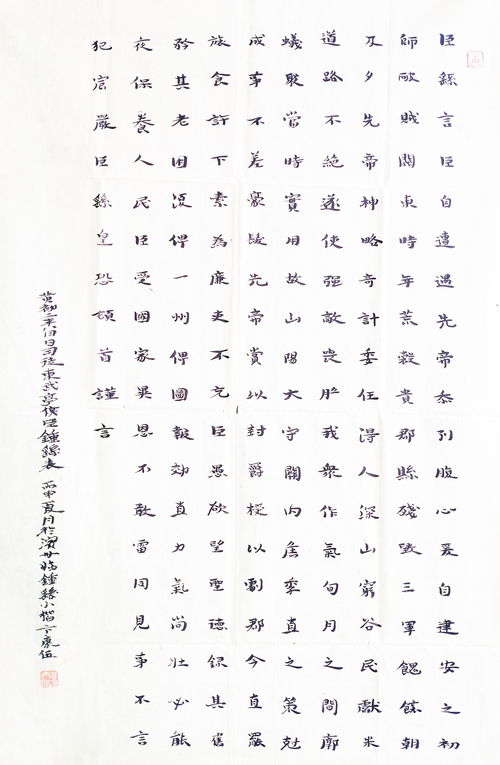 臣繇言臣自遭遇先帝忝列腹心爰自建安之初
師破賊關東時年荒穀貴郡縣殘毀三軍餽饟朝
及夕先帝神略奇計委任得人深山窮谷民獻米
道路不絕遂使強敵喪膽我衆作氣旬月之間廓
蟻聚當時實用故山陽大守關內侯季直之策尅
成事不差豪髮先帝賞以封爵授以劇郡今直罷
旅食許下素為廉吏不充臣愚欲望聖德錄其舊
矜其老困復俾一州俾圖報効直力氣尚壯必能
夜保養人民臣受國家異恩不敢雷同見事不言
犯宸嚴臣繇皇恐頓首謹言
黃初二年八月日司徒東武亭侯臣鍾繇表 丙申夏月於濱州臨鍾繇小楷